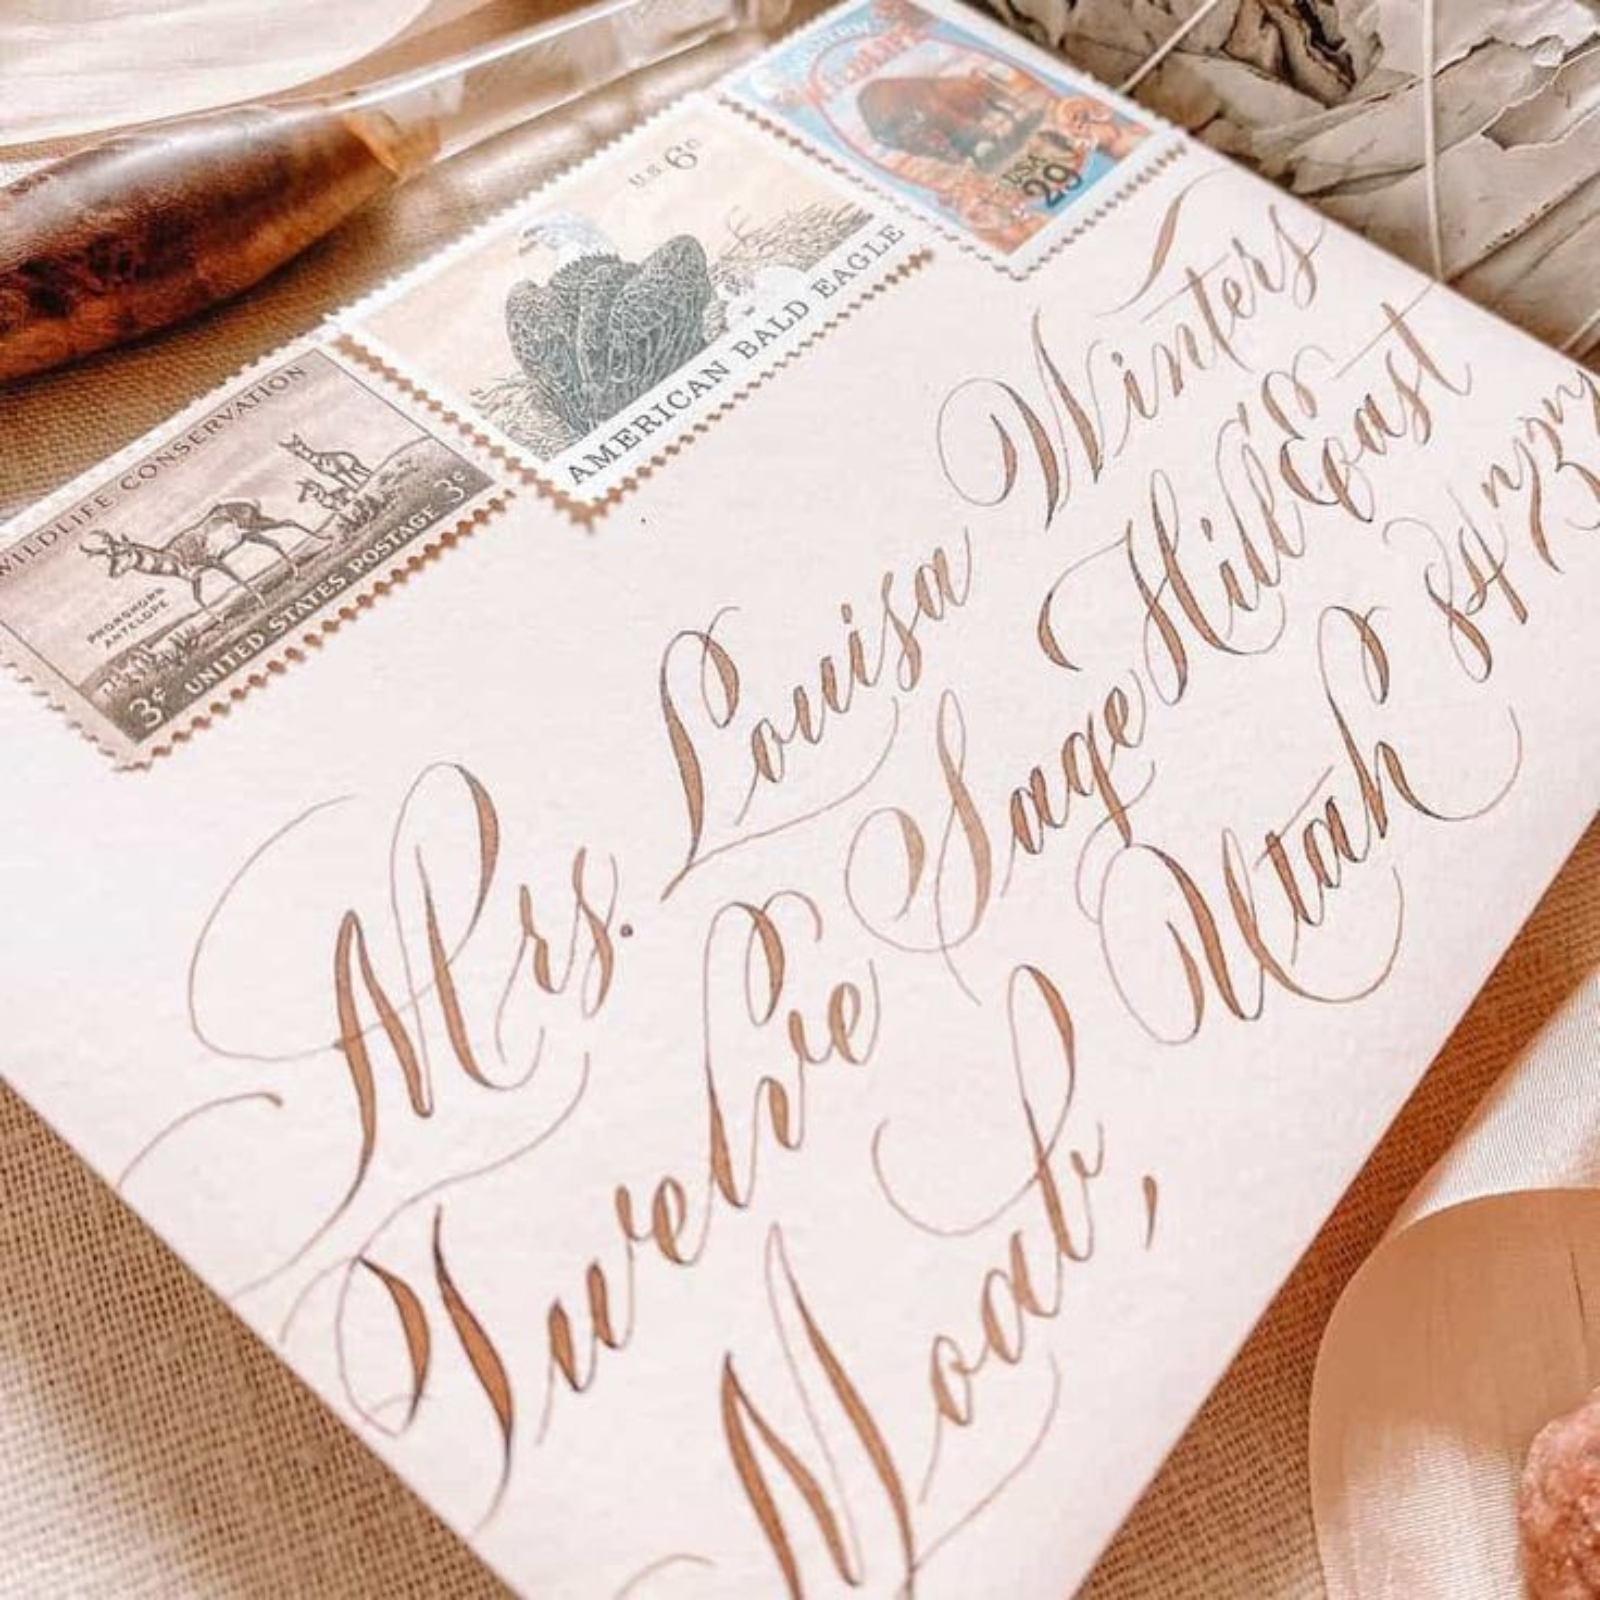 WILDLIFE CONSERVATION
PRONGHORN
ANTELOPE
3¢
3¢
UNITED STATES POSTAGE
U.S. 6¢
AMERICAN BALD EAGLE
WILDLIFE
USA
29
Mrs. Louisa Winters
Twelve Sage Hill East
Moab, Utah